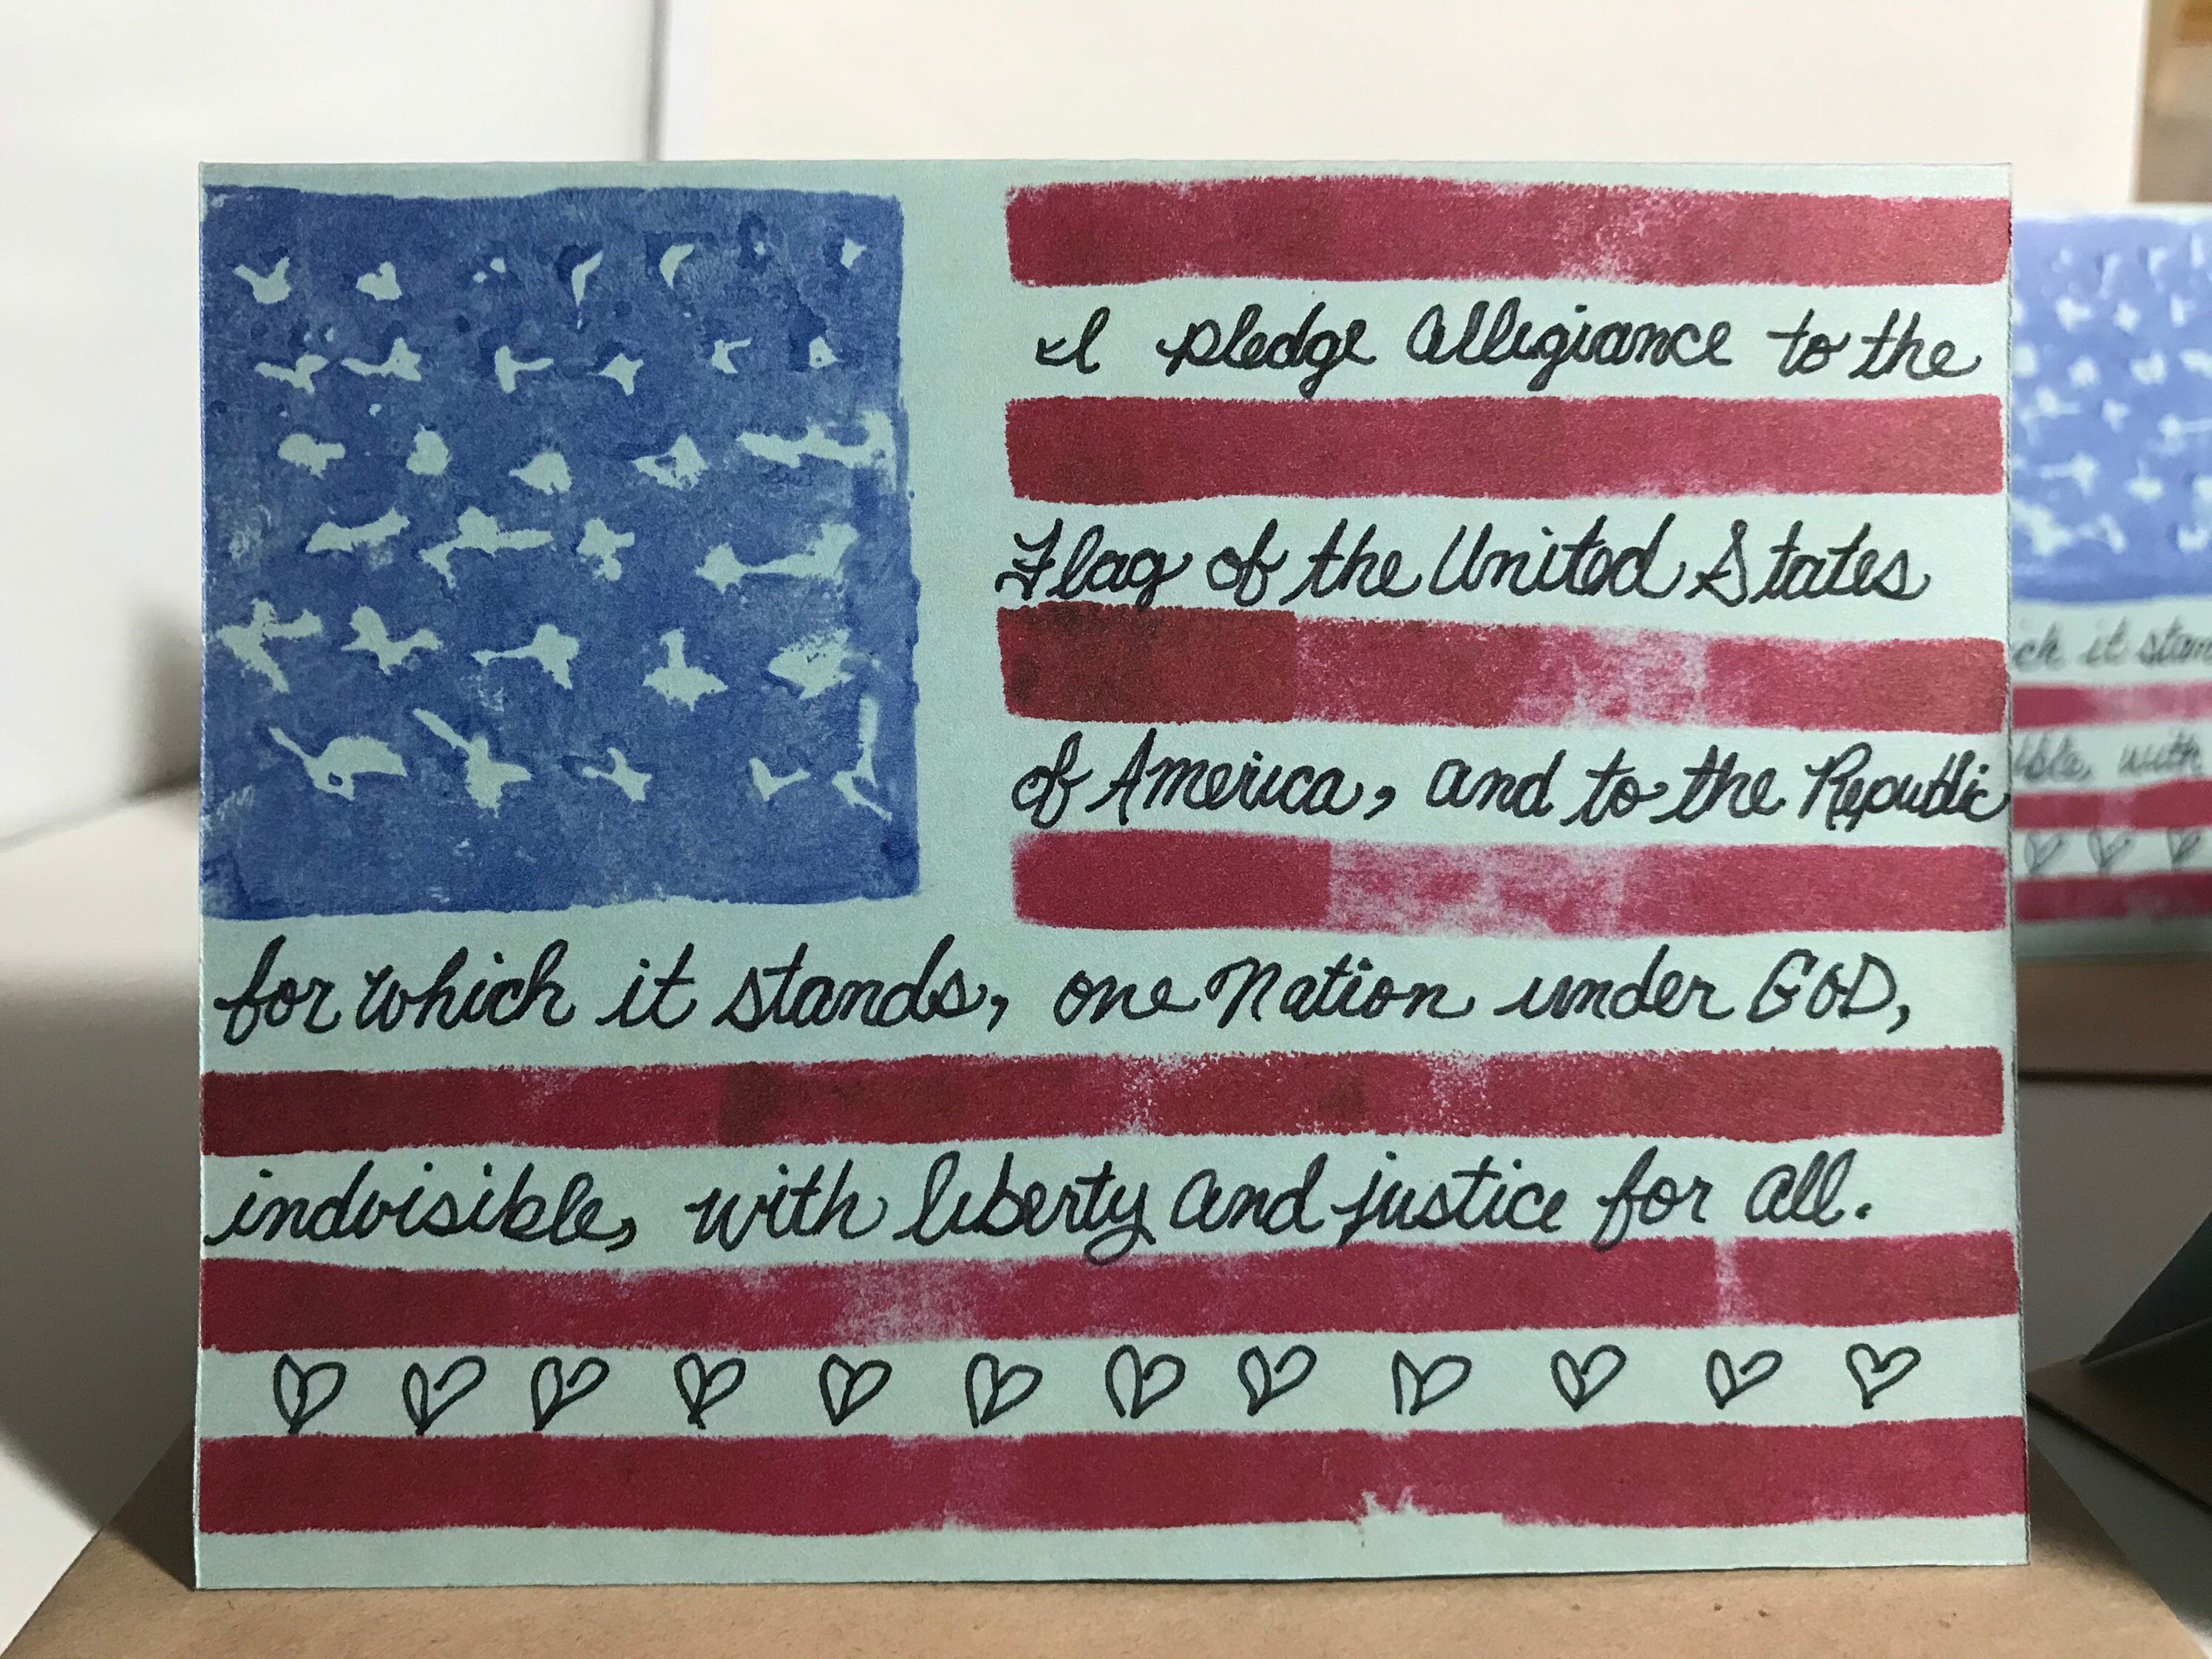 I pledge allegiance to the
Flag of the United States
of America, and to the Republic
for which it stands, one Nation under GOD,
indvisible, with liberty and justice for all.
ch it stan
ible, with